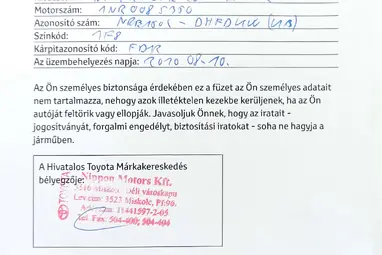 Motorszám: 1NR0085350
Azonosító szám: NRB150L - DHFDKW (1B)
Színkód: 1F8
Kárpitazonosító kód: FD12
Az üzembehelyezés napja: 2010 08.10.
Az Ön személyes biztonsága érdekében ez a füzet az Ön személyes adatait
nem tartalmazza, nehogy azok illetéktelen kezekbe kerüljenek, ha az Ön
autóját feltörik vagy ellopják. Javasoljuk Önnek, hogy az iratait -
jogosítványát, forgalmi engedélyt, biztosítási iratokat - soha ne hagyja a
járműben.
A Hivatalos Toyota Márkakereskedés
bélyegzője:
TOYOTA
Nippon Motors Kft.
3516 Miskolc Déli városkapu
Lev.cím: 3525 Miskolc, Pf.96.
11441597-2-05
Tel./Fax: 504-400; 504-404